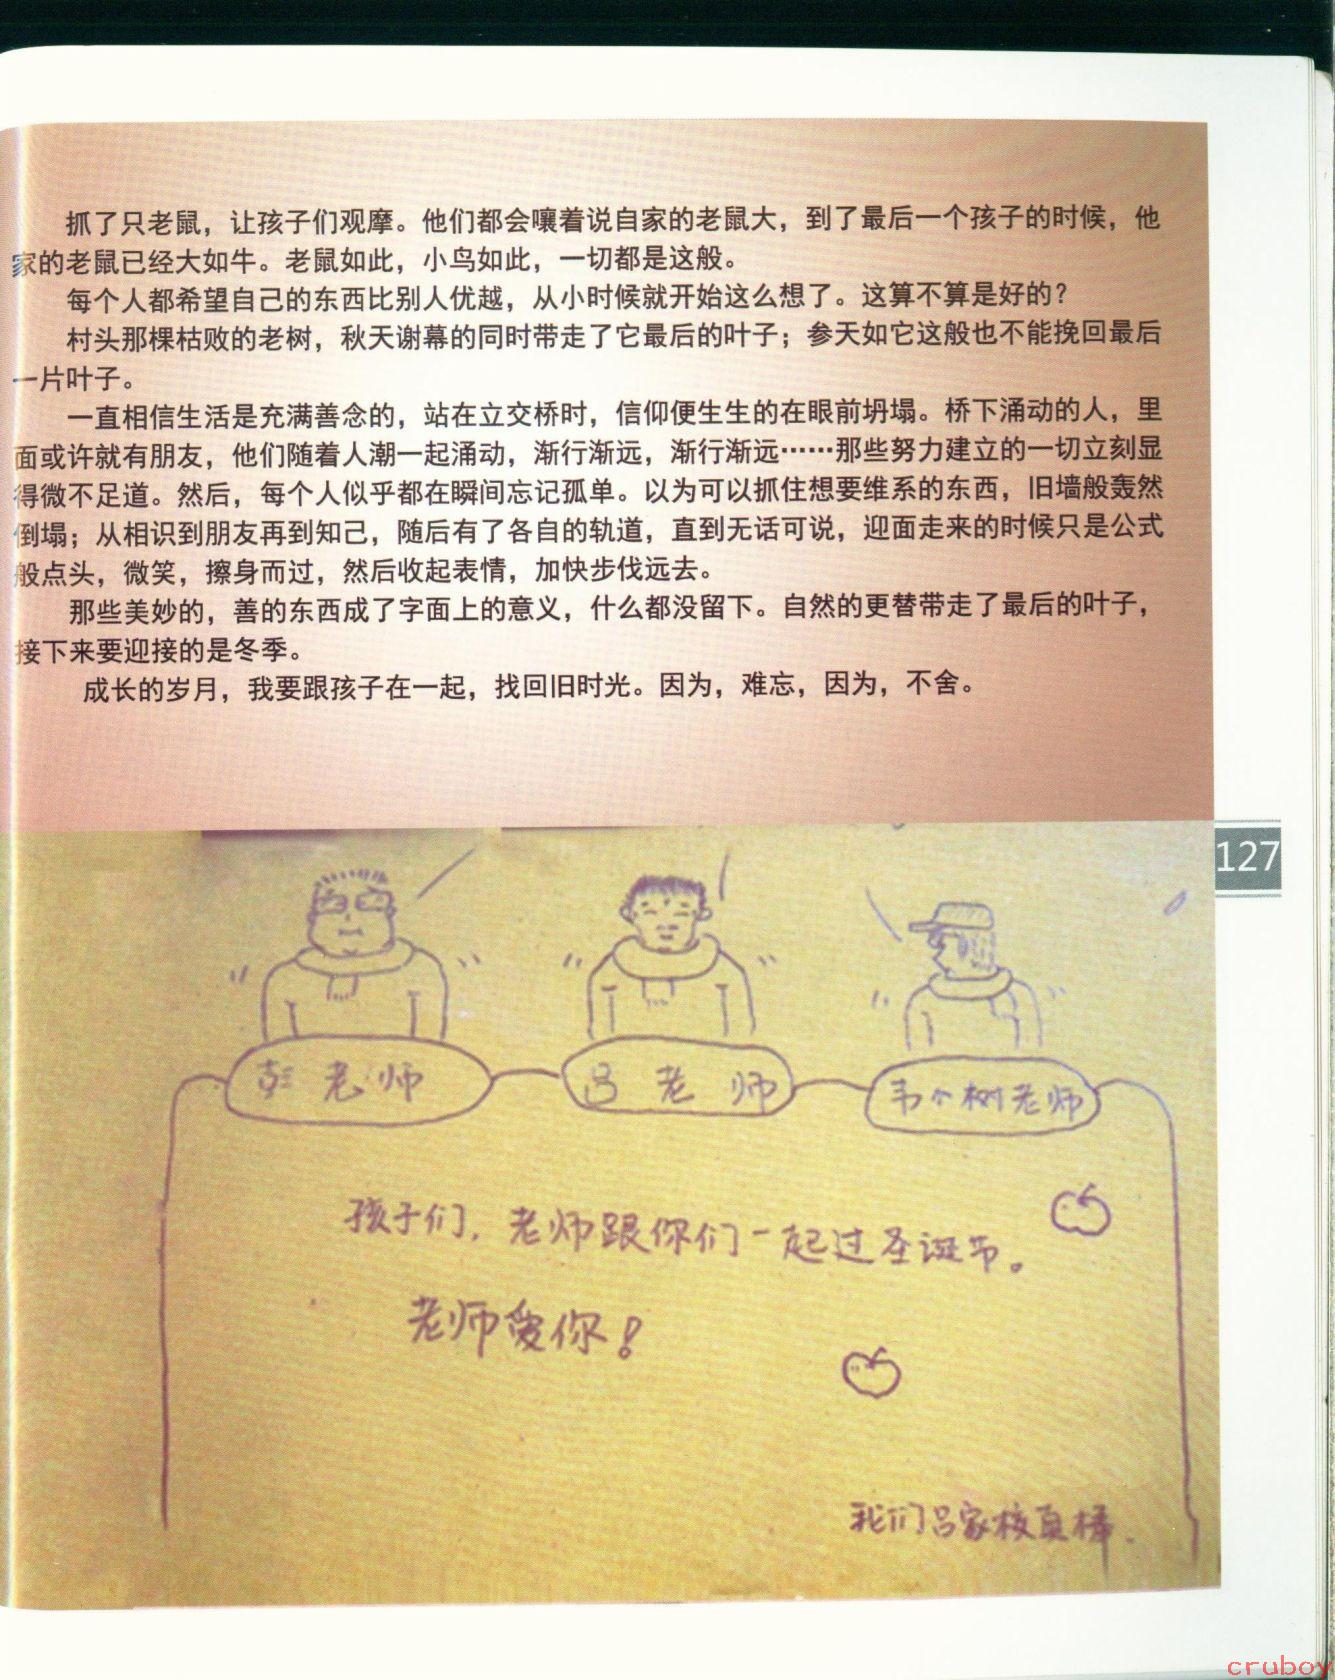 抓了只老鼠，让孩子们观摩。他们都会嚷着说自家的老鼠大，到了最后一个孩子的时候，他
家的老鼠已经大如牛。老鼠如此，小鸟如此，一切都是这般。
每个人都希望自己的东西比别人优越，从小时候就开始这么想了。这算不算是好的？
村头那棵枯败的老树，秋天谢幕的同时带走了它最后的叶子；参天如它这般也不能挽回最后
一片叶子。
一直相信生活是充满善念的，站在立交桥时，信仰便生生的在眼前坍塌。桥下涌动的人，里
面或许就有朋友，他们随着人潮一起涌动，渐行渐远，渐行渐远……那些努力建立的一切立刻显
得微不足道。然后，每个人似乎都在瞬间忘记孤单。以为可以抓住想要维系的东西，旧墙般轰然
倒塌；从相识到朋友再到知己，随后有了各自的轨道，直到无话可说，迎面走来的时候只是公式
般点头，微笑，擦身而过，然后收起表情，加快步伐远去。
那些美妙的，善的东西成了字面上的意义，什么都没留下。自然的更替带走了最后的叶子，
接下来要迎接的是冬季。
成长的岁月，我要跟孩子在一起，找回旧时光。因为，难忘，因为，不舍。
127
彭老师
吕老师
韦小树老师
孩子们，老师跟你们一起过圣诞节。
老师爱你！
我们吕家校真棒.
cruboy